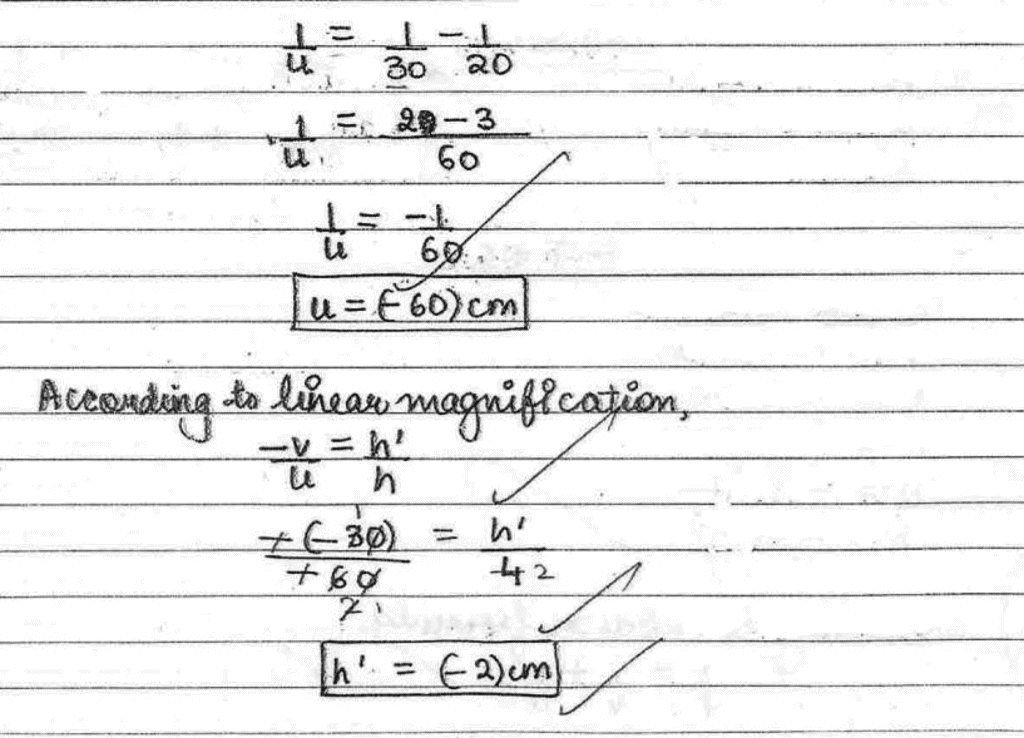 1/u = 1/30 - 1/20
1/u = 2 - 3/60
1/u = -1/60
u = (-60) cm
According to linear magnification,
-v/u = h'/h
+(-30)/+60 = h'/4
h' = (-2) cm